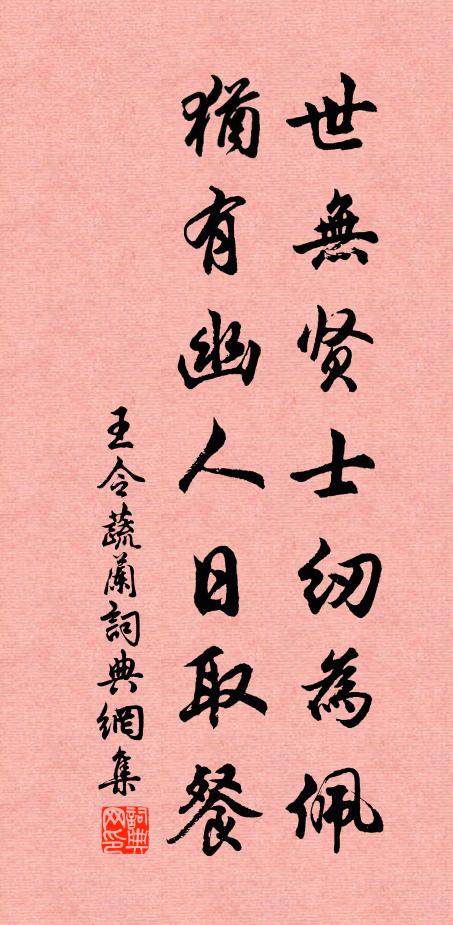 世無贤士纫為佩
猶有幽人日取餐
王令蔬蘭詞典網集
詞典网印